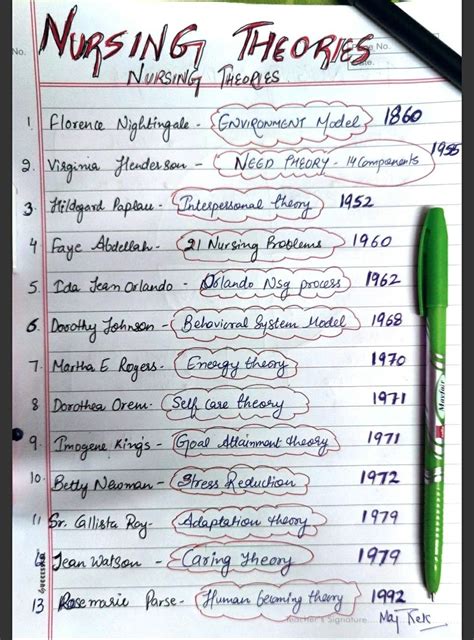 NURSING THEORIES
No.
Page No.
Date.
NURSING THEORIES
1. Florence Nightingale - ENVIRONMENT Model 1860
2. Virginia Henderson - NEED THEORY - 14 Components 1955
3. Hildgard Paplau - Interpersonal theory 1952
4 Faye Abdellah - 21 Nursing Problems 1960
5. Ida Jean Orlando - Orlando Nsg process 1962
6. Dorothy Johnson - Behavioral System Model 1968
7. Martha E Rogers - Energy theory 1970
8 Dorothea Orem - Self care theory 1971
9. Imogene King's - Goal Attainment theory 1971
10. Betty Newman - Stress Reduction 1972
11 Sr. Callista Roy - Adaptation theory 1979
12 Jean Watson - Caring theory 1979
13 Rosemarie Parse - Human becoming theory 1992
Teacher's Signature
Mayfair